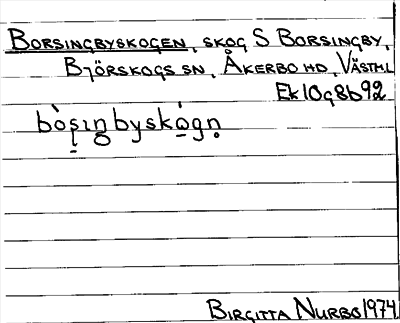 BORSINGBYSKOGEN, SKOG S BORSINGBY,
BJÖRSKOGS SN, ÅKERBO HD, VÄSTML
Ek10g8b92
bòṣıngbyskó̠gṇ
BIRGITTA NURBO 1974